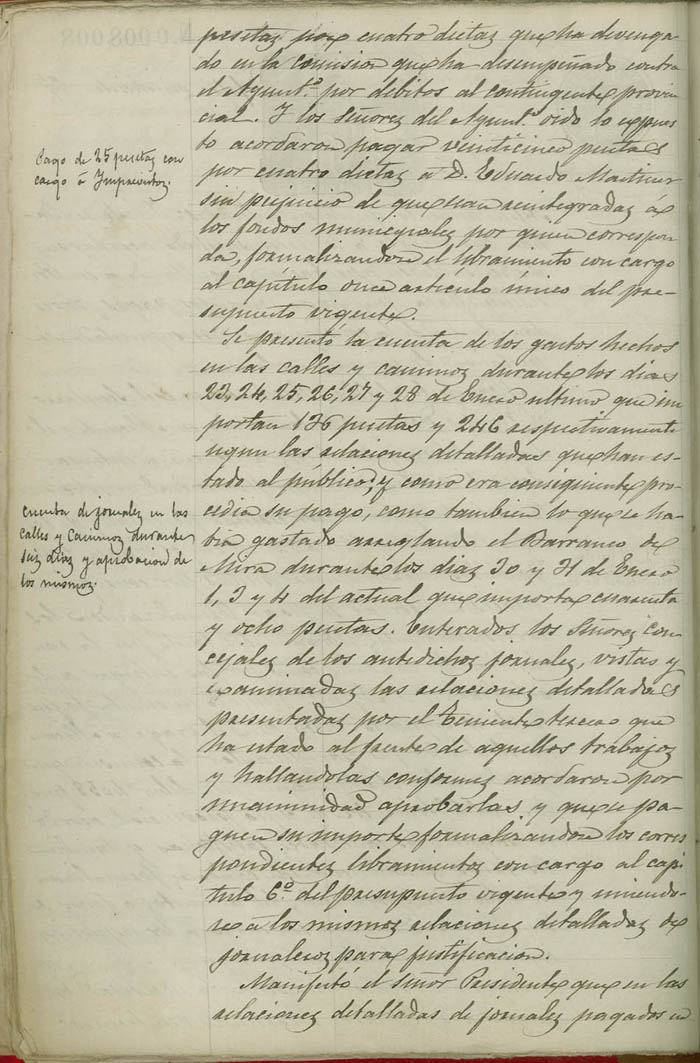 pesetas por cuatro dietas que ha devenga
do en la comision que ha desempeñado contra
el Ayunt.º por débitos al contingente provin
cial. Y los Señores del Ayunt.º oido lo expues
to acordaron pagar veinticinco pesetas
por cuatro dietas á D. Eduardo Martinez
sin perjuicio de que sean reintegradas á
los fondos municipales por quien correspon
da, formalizandose el libramiento con cargo
al capítulo once articulo único del pre-
supuesto vigente.
Pago de 25 pesetas con
cargo á Imprevistos.
Se presentó la cuenta de los gastos hechos
en las calles y caminos durante los dias
23, 24, 25, 26, 27 y 28 de Enero ultimo que im
portan 136 pesetas y 246 respectivamente
segun las relaciones detalladas que han es-
tado al público; y como era consiguiente pro-
cedia su pago, como tambien lo que se ha
bia gastado arreglando el Barranco de
Mira durante los dias 30 y 31 de Enero
1, 3 y 4 del actual que importa cuarenta
y ocho pesetas. Enterados los Señores Con-
cejales de los antedichos jornales, vistas y
examinadas las relaciones detalladas
presentadas por el Teniente tercero que
ha estado al frente de aquellos trabajos
y hallandolas conformes acordaron por
unanimidad aprobarlas y que se pa-
guen su importe formalizandose los corres
pondientes libramientos con cargo al capi-
tulo 6º del presupuesto vigente y uniendo-
se á los mismos relaciones detalladas de
jornaleros para justificacion.
cuenta de jornales en las
calles y caminos durante
seis dias y aprobacion de
los mismos.
Manifestó el Señor Presidente que en las
relaciones detalladas de jornales pagados en